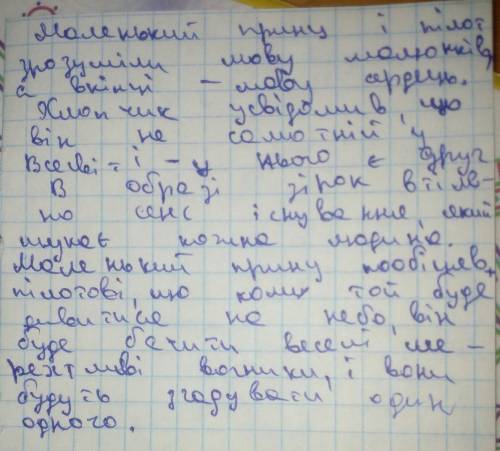 Маленький принц і пілот
зрозуміли мову малюнків,
а вкінці – мову сердець.
Хлопчик усвідомив, що
він не самотній у
Всесвіті – у нього є друг
В образі зірок втіле-
но сенс існування, який
шукає кожна людина.
Маленький принц пообіцяв
пілотові, що коли той буде
дивитися на небо, він
буде бачити веселі ме-
рехтливі вогники, і вони
будуть згадувати один
одного.